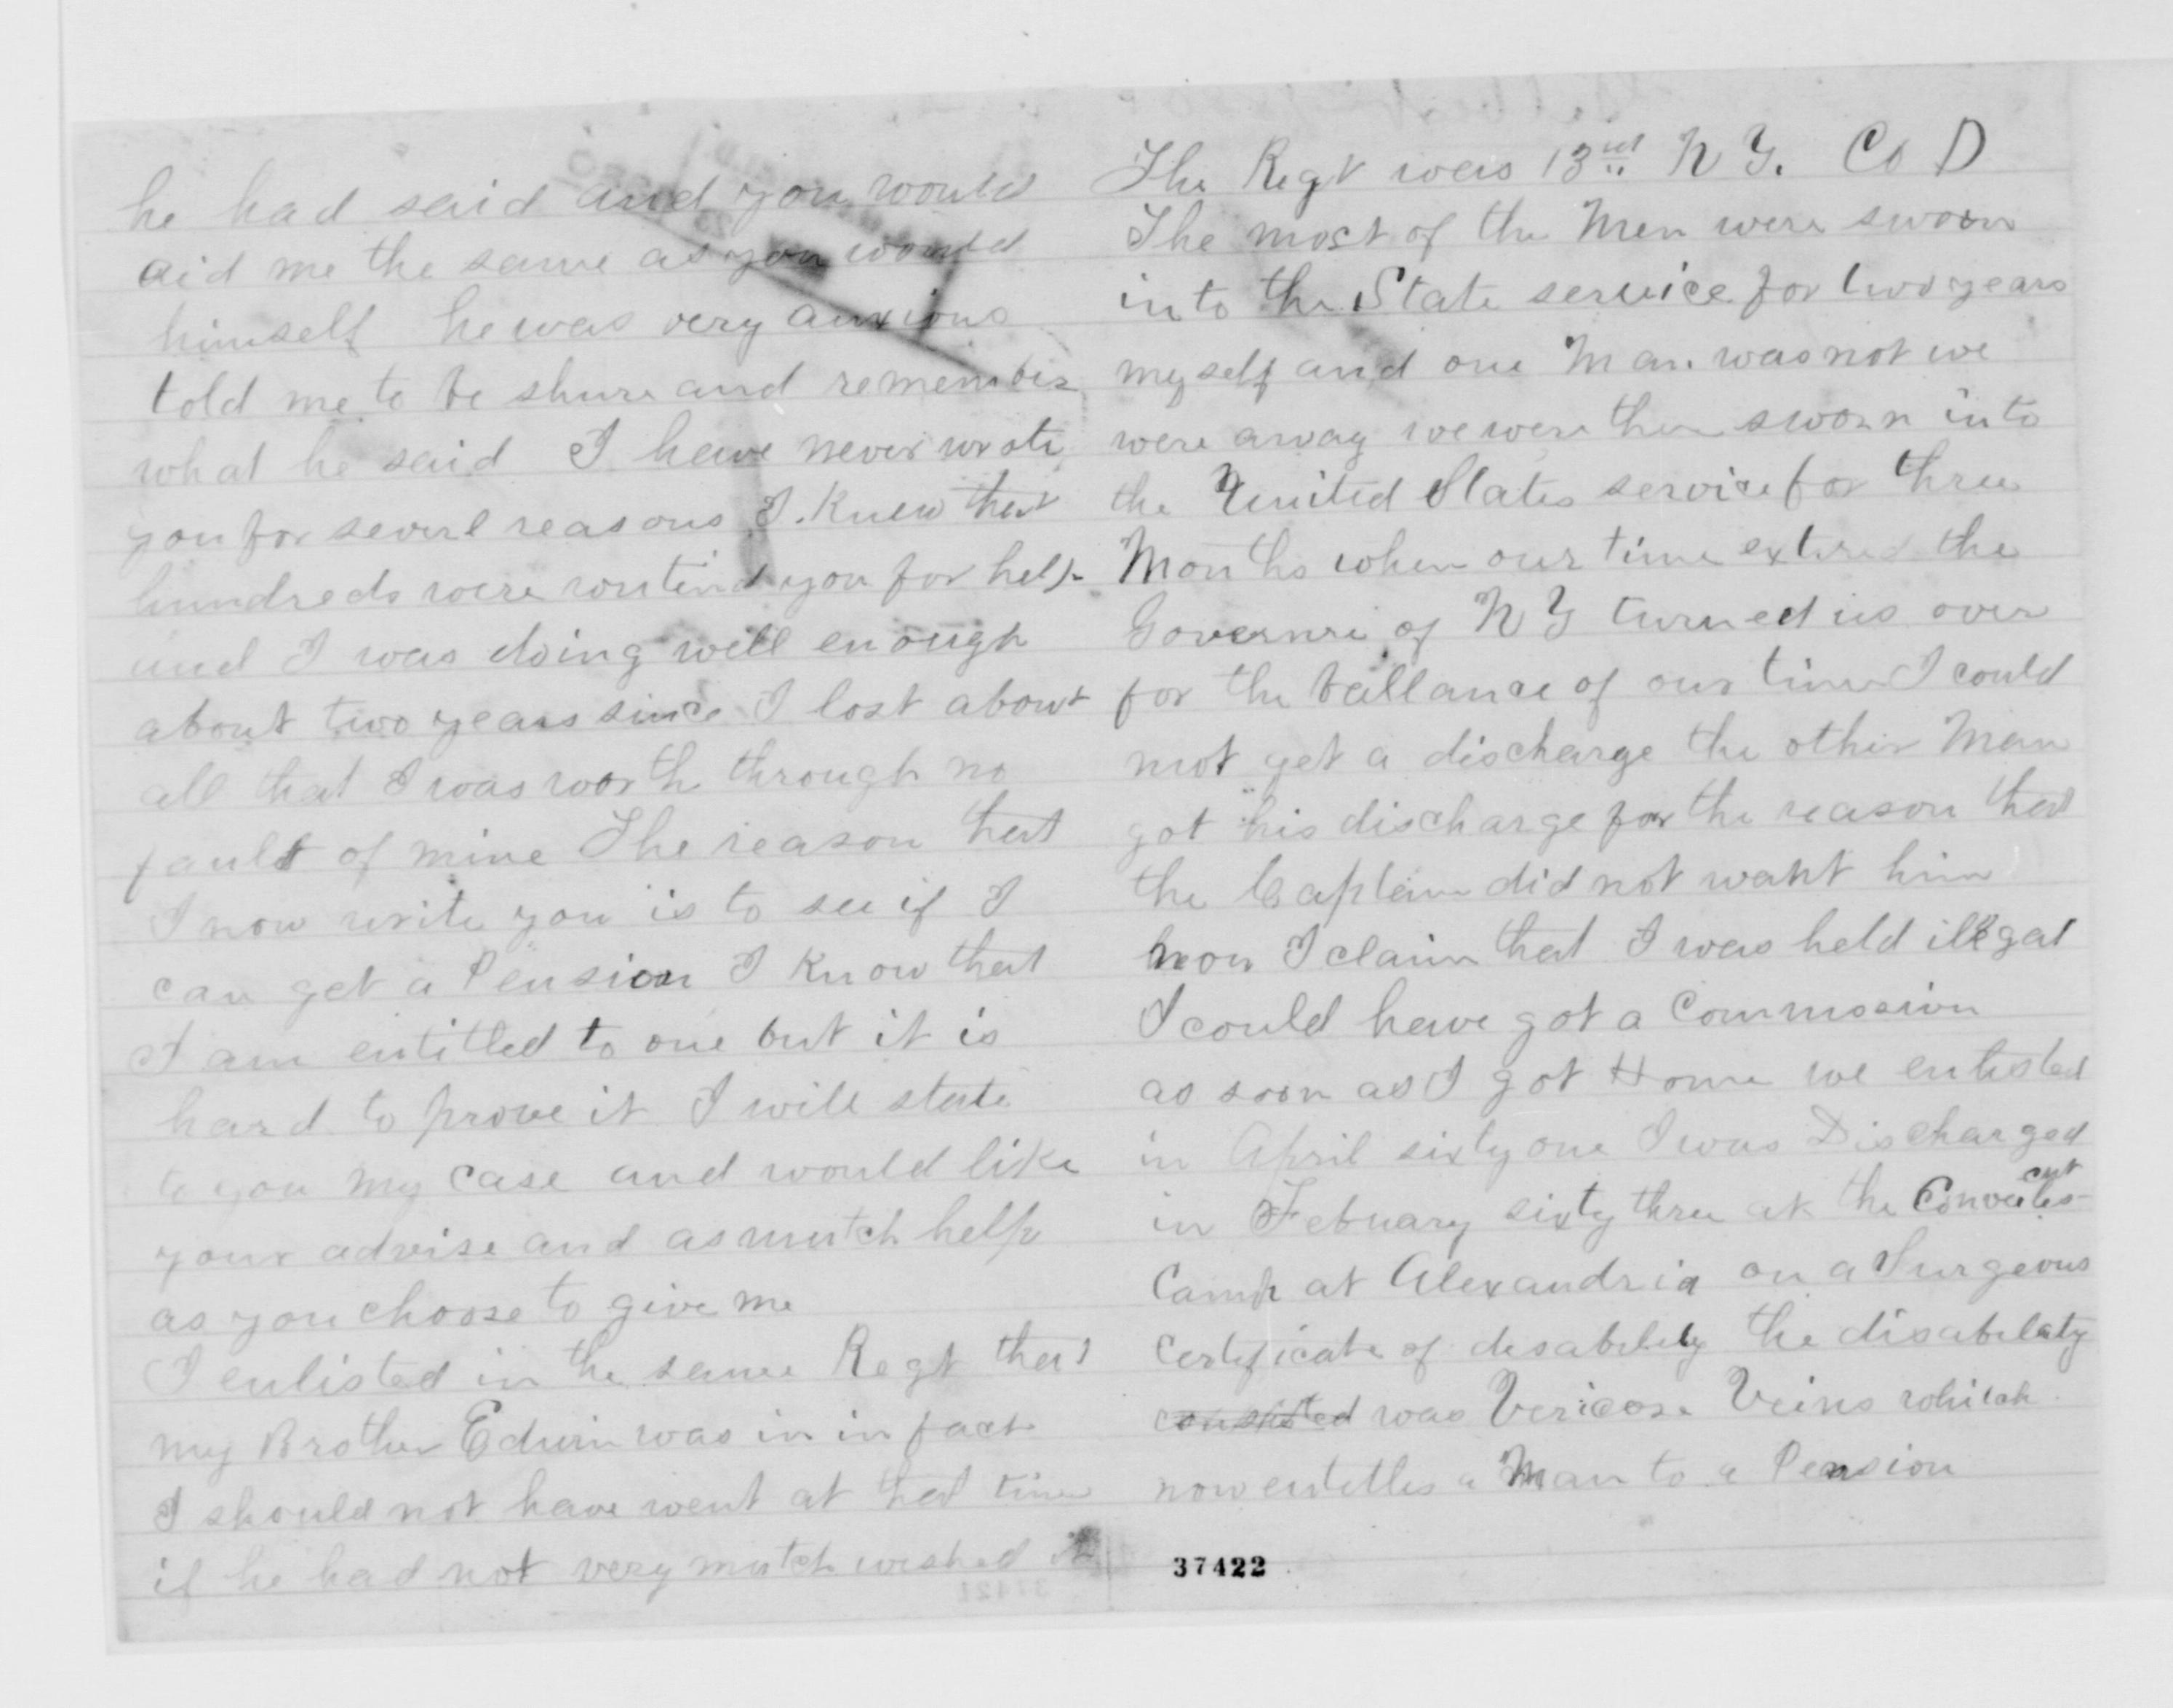 he had said and you would
aid me the same as you would
himself he was very anxious
told me to be shure and remember
what he said I have never wrote
you for severl reasons I Knew that
hundreds were you for help
and I was doing well enough
about two years since I lost about
all that I was worth through no
fault of mine The reason that
I now write you is to see if I
can get a Pension I Know that
I am entitled to one but it is
hard to prove it I will state
to you my case and would like
your advise and as mutch help
as you choose to give me
I enlisted in the same Regt that
my Brother Edwin was in in fact
I should not have went at that time
if he had not very mutch wished it
The Regt was 13 N Y. Co D
The most of the Men were sworn
into the State service for two years
myself and one Man was not we
were away we were then sworn into
the United States service for three
Months when our time the
of N Y turned us over
for the ballance of our time I could
not get a discharge the other Man
got his discharge for the reason that
the Captain did not want him
now I claim that I was held illegal
I could have got a Commission
as soon as I got Home we enlisted
in April sixty one I was Discharged
in Febuary sixty three at the
Camp at Alexandria on a Surgeons
Certificate of the disabilaty
was Vericose Veins which
now entitles a Man to a Pension
37422